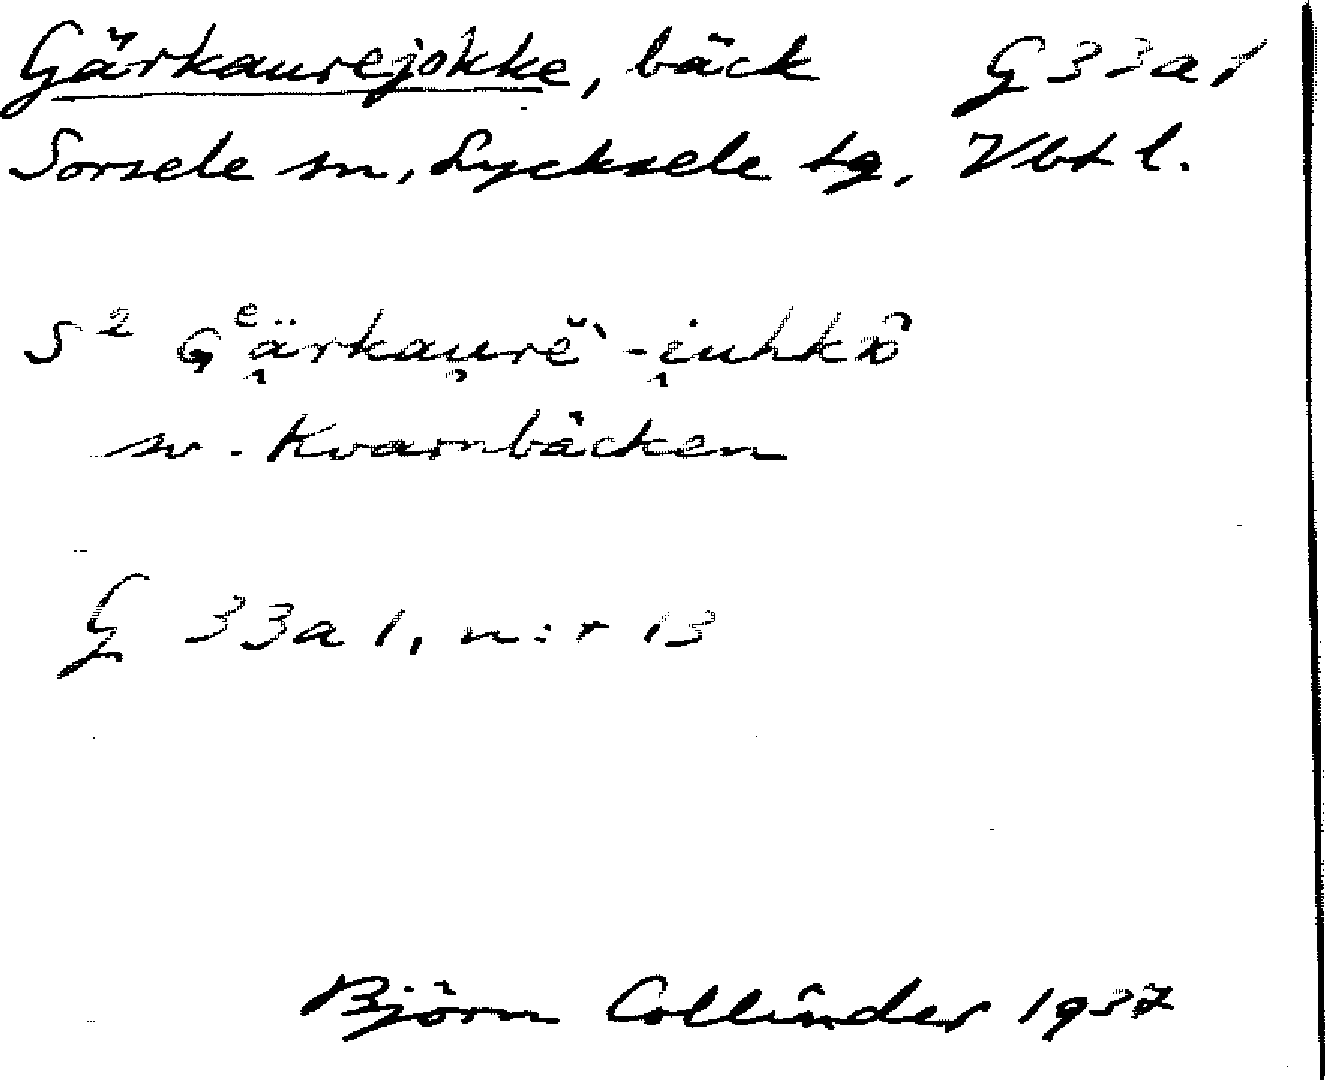 Gärkaurejokke, bäck G 33a1
Sorsele sn, Lycksele tg. Vbt l.
S² Gᵉärkaurĕ̀ -i̯uhkō̂
sv. Kvarnbäcken
G 33a 1, n:r 13
Björn Collinder 1937